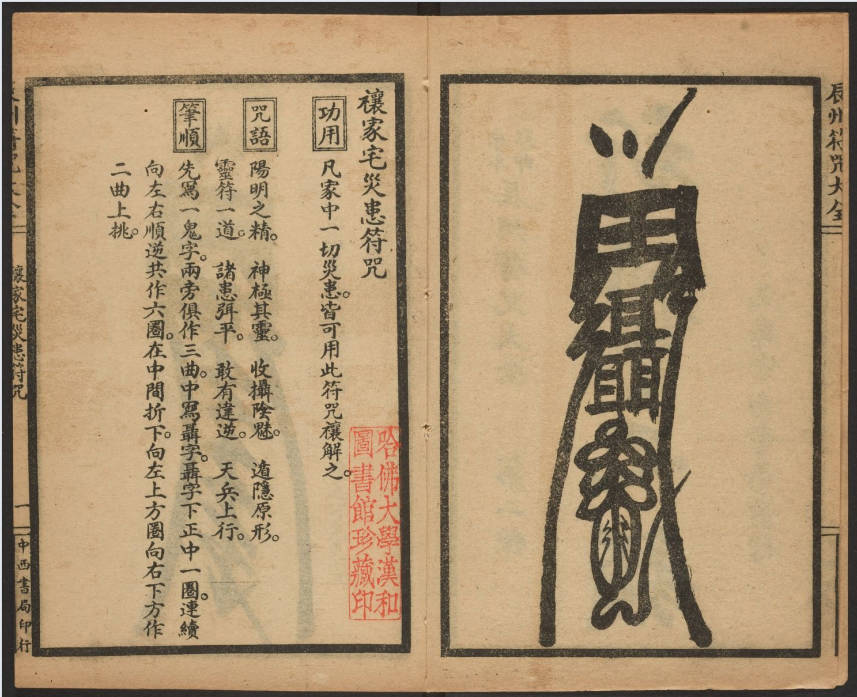 辰州符咒大全
禳家宅災患符咒
功用 凡家中一切災患。皆可用此符咒禳解之。
哈佛大學漢和
圖書館珍藏印
咒語 陽明之精。神極其靈。收攝陰魅。遁隱原形。
靈符一道。諸患弭平。敢有違逆。天兵上行。
筆順 先寫一鬼字。兩旁俱作三曲。中寫聶字。聶字下正中一圈。連續
向左右順逆共作六圈。在中間折下。向左上方圈向右下方作
二曲上挑。
禳家宅災患符咒
一
中西書局印行